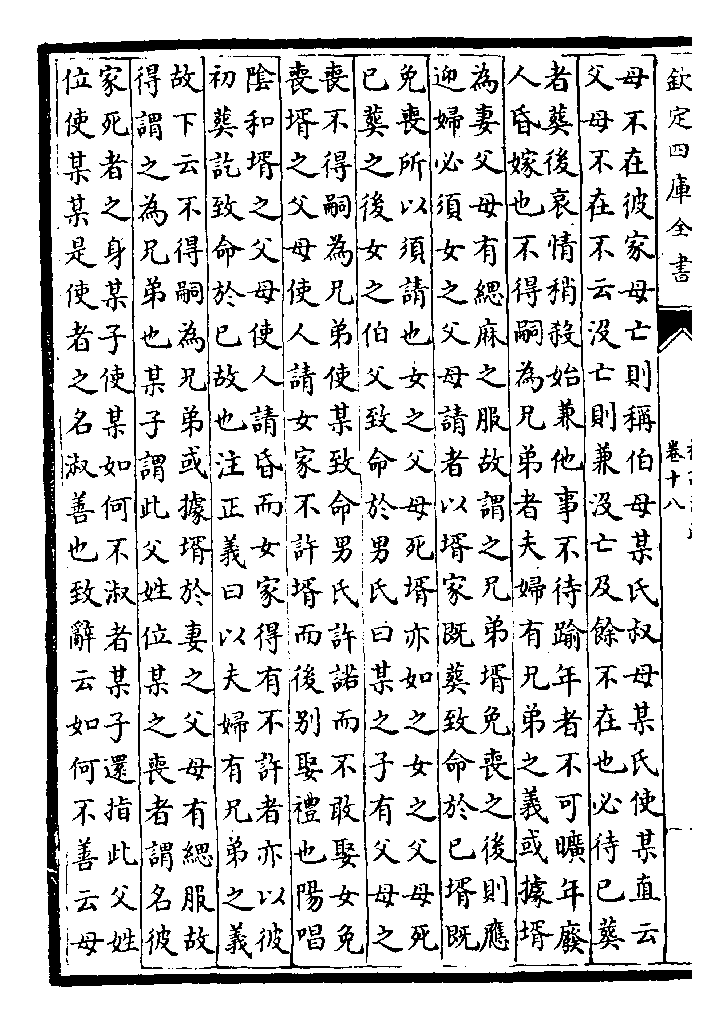 欽定四庫全書
卷十八
母不在彼家母亡則稱伯母某氏叔母某氏使某直云
父母不在不云沒亡則兼沒亡及餘不在也必待已葬
者葬後哀情稍殺始兼他事不待踰年者不可曠年廢
人昏嫁也不得嗣為兄弟者夫婦有兄弟之義或據壻
為妻父母有緦麻之服故謂之兄弟壻免喪之後則應
迎婦必須女之父母請者以壻家既葬致命於已壻既
免喪所以須請也女之父母死壻亦如之女之父母死
已葬之後女之伯父致命於男氏曰某之子有父母之
喪不得嗣為兄弟使某致命男氏許諾而不敢娶女免
喪壻之父母使人請女家不許壻而後別娶禮也陽唱
陰和壻之父母使人請昏而女家得有不許者亦以彼
初葬訖致命於已故也注正義曰以夫婦有兄弟之義
故下云不得嗣為兄弟或據壻於妻之父母有緦服故
得謂之為兄弟也某子謂此父姓位某之喪者謂名彼
家死者之身某子使某如何不淑者某子還指此父姓
位使某某是使者之名淑善也致辭云如何不善云母